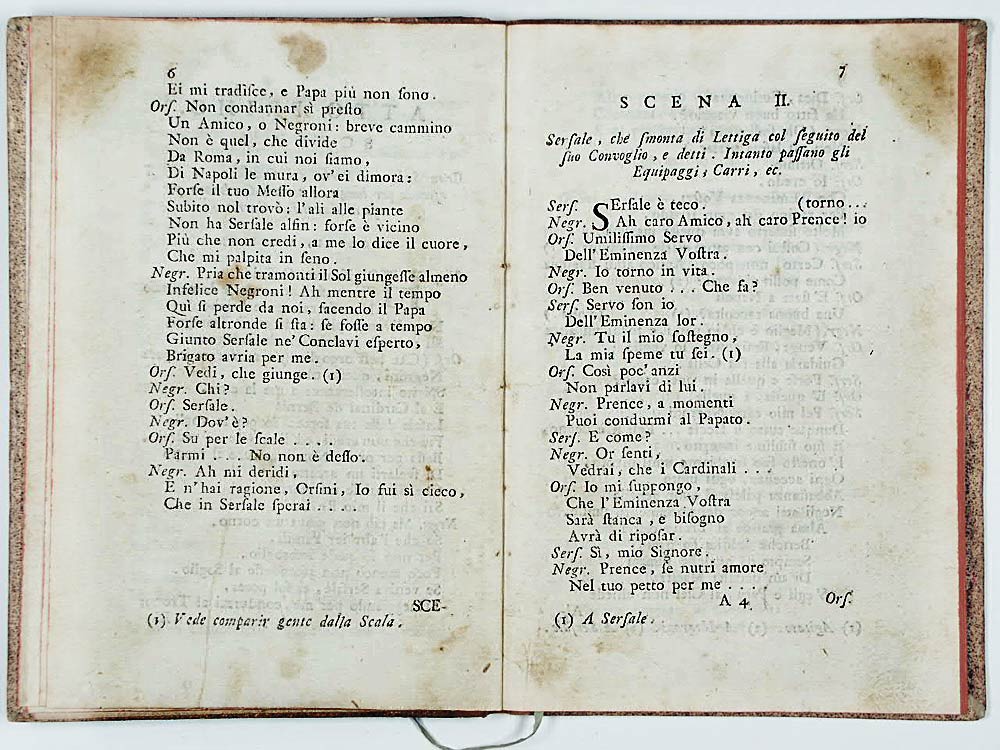 6
Ei mi tradiſce, e Papa più non ſono.
Orſ. Non condannar sì preſto
Un Amico, o Negroni: breve cammino
Non è quel, che divide
Da Roma, in cui noi ſiamo,
Di Napoli le mura, ov'ei dimora:
Forſe il tuo Meſſo allora
Subito nol trovò: l'ali alle piante
Non ha Serſale alfin: forſe è vicino
Più che non credi, a me lo dice il cuore,
Che mi palpita in ſeno.
Negr. Pria che tramonti il Sol giungeſſe almeno
Infelice Negroni! Ah mentre il tempo
Quì ſi perde da noi, facendo il Papa
Forſe altronde ſi ſta: ſe foſſe a tempo
Giunto Serſale ne' Conclavi eſperto,
Brigato avria per me.
Orſ. Vedi, che giunge. (1)
Negr. Chi?
Orſ. Serſale.
Negr. Dov'è?
Orſ. Su per le ſcale ....
Parmi ... No non è deſſo.
Negr. Ah mi deridi,
E n'hai ragione, Orſini, Io fui sì cieco,
Che in Serſale ſperai ....
SCE-
(1) Vede comparir gente dalla Scala.
7
SCENA II.
Serſale, che ſmonta di Lettiga col ſeguito del
ſuo Convoglio, e detti. Intanto paſſano gli
Equipaggi, Carri, ec.
Serſ. SErſale è teco. (torno...
Negr. Ah caro Amico, ah caro Prence! io
Orſ. Umiliſſimo Servo
Dell'Eminenza Voſtra.
Negr. Io torno in vita.
Orſ. Ben venuto ... Che fa?
Serſ. Servo ſon io
Dell'Eminenza lor.
Negr. Tu il mio ſoſtegno,
La mia ſpeme tu ſei. (1)
Orſ. Così poc'anzi
Non parlavi di lui.
Negr. Prence, a momenti
Puoi condurmi al Papato.
Serſ. E come?
Negr. Or ſenti,
Vedrai, che i Cardinali ...
Orſ. Io mi ſuppongo,
Che l'Eminenza Voſtra
Sarà ſtanca, e biſogno
Avrà di ripoſar.
Serſ. Sì, mio Signore.
Negr. Prence, ſe nutri amore
Nel tuo petto per me ....
A 4. Orſ.
(1) A Serſale.